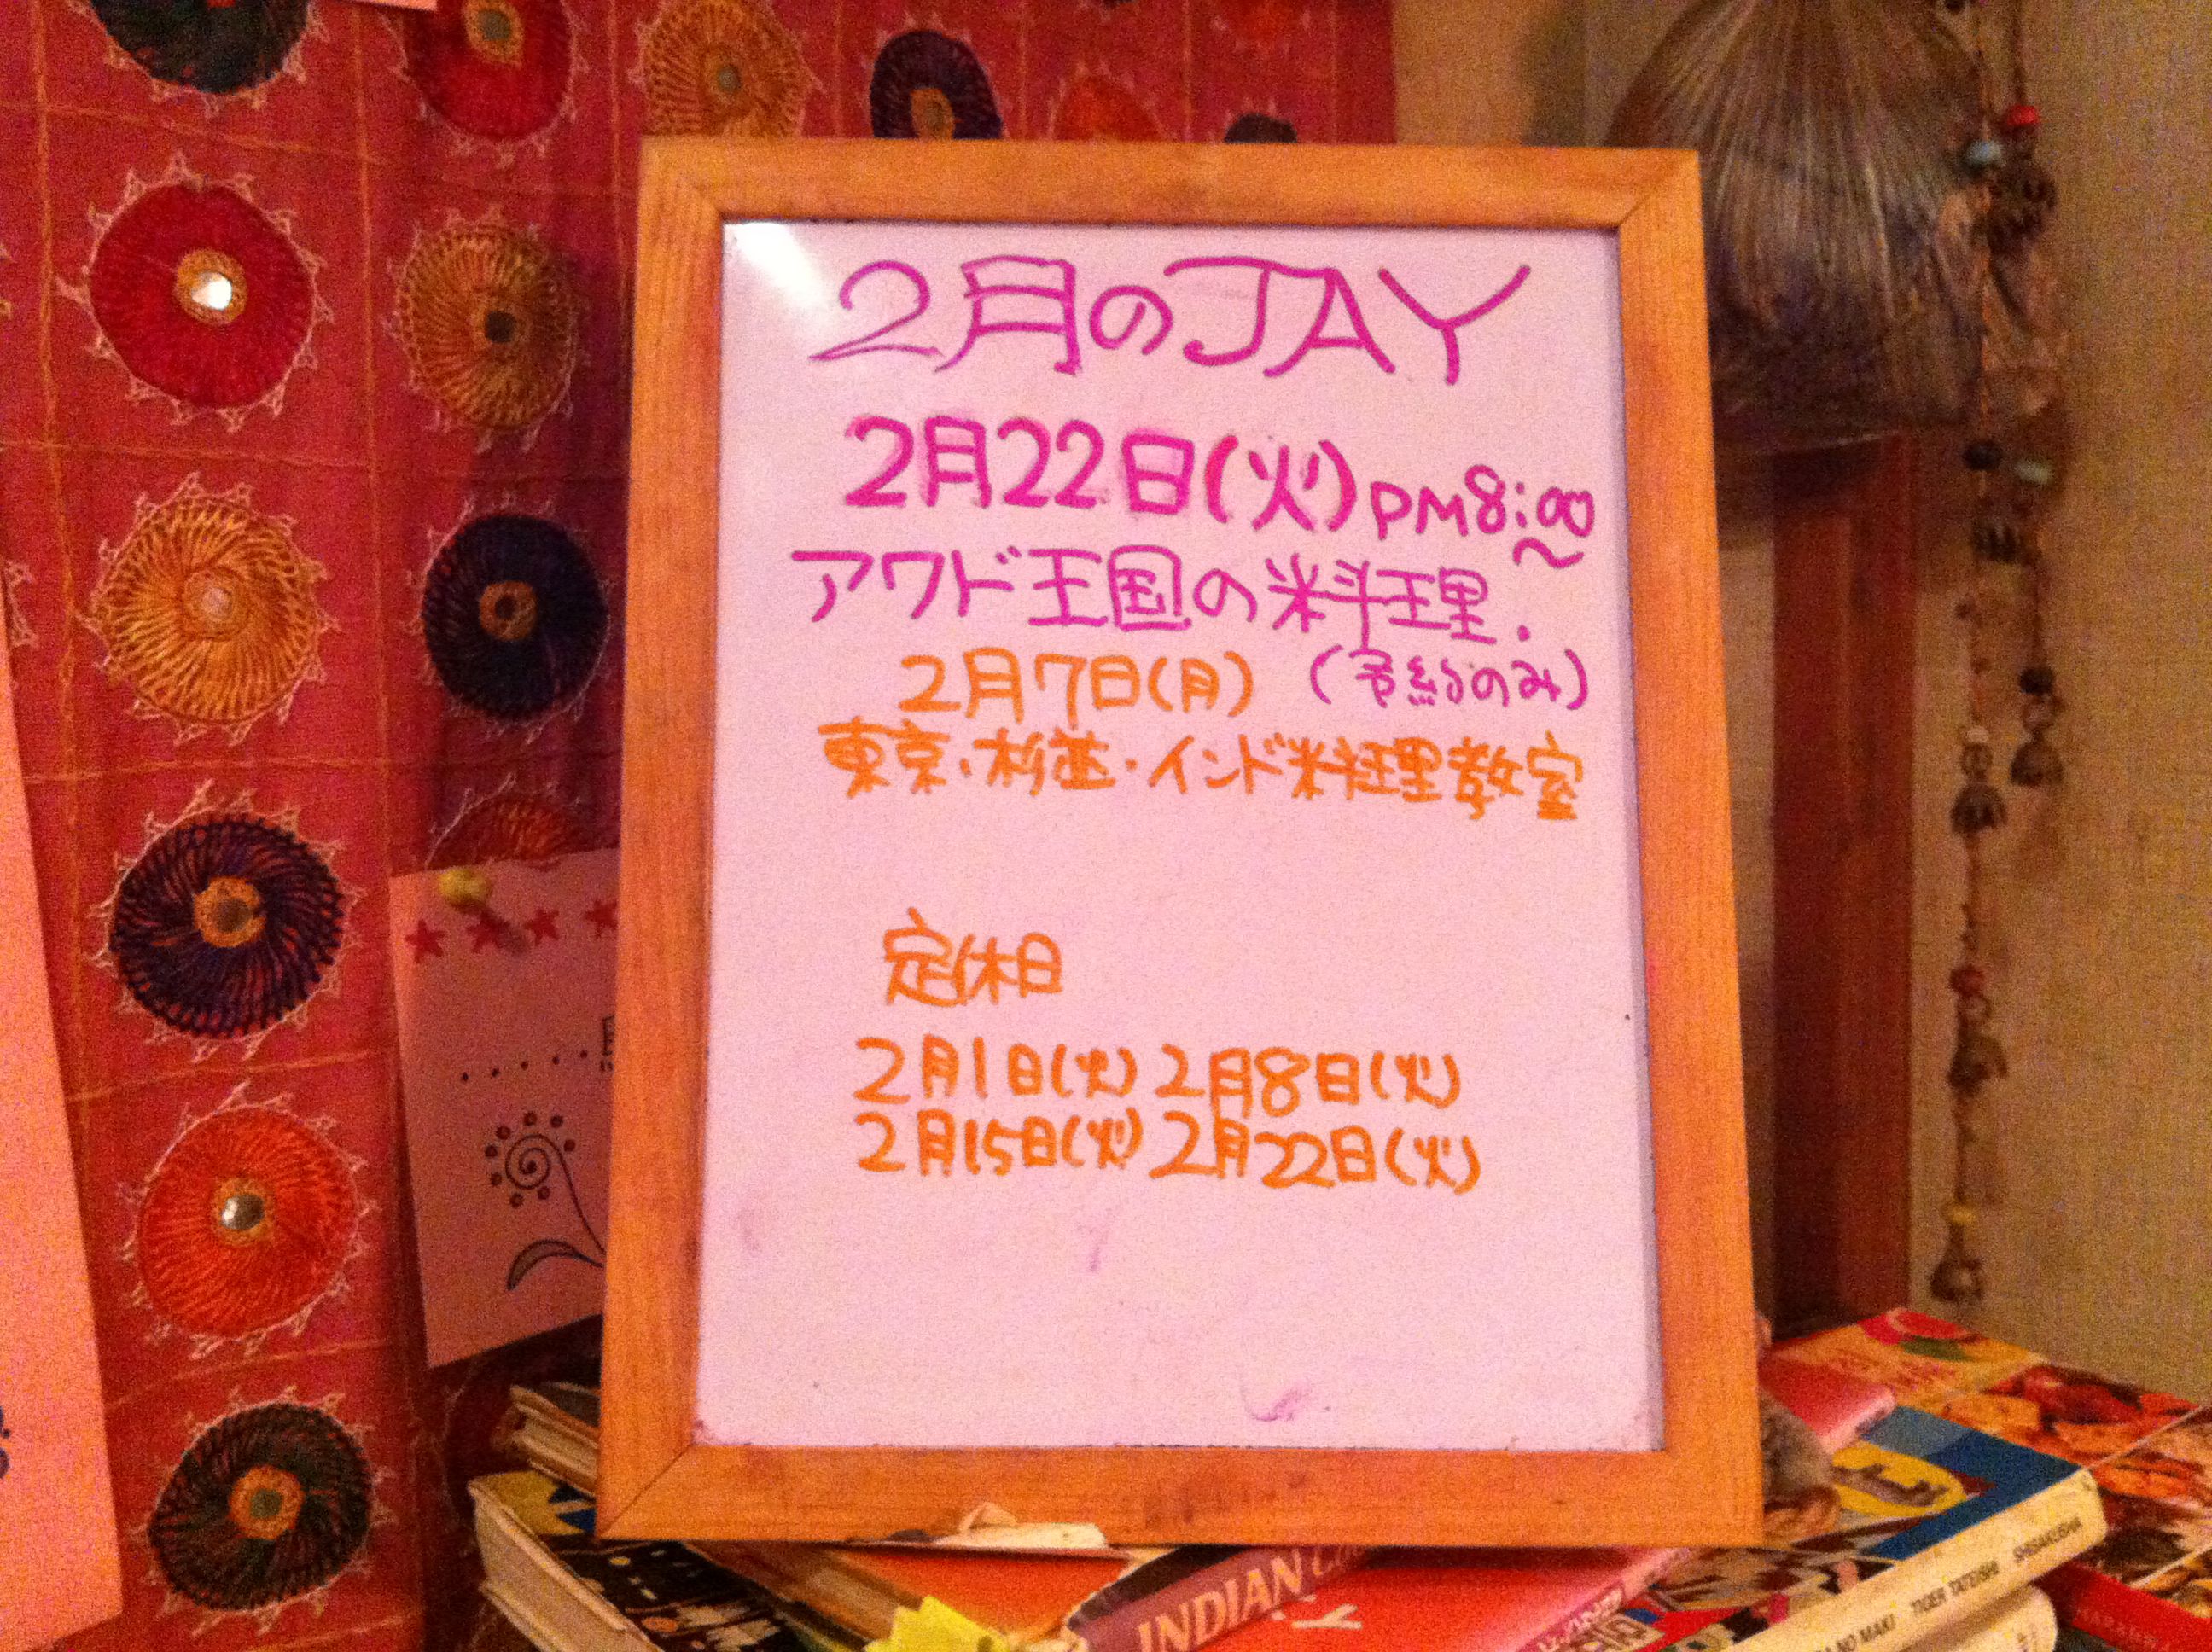 2月のJAY
2月22日(火)PM8:00~
アワド王国の料理.
(予約のみ)
2月7日(月)
東京・杉並・インド料理教室
定休日
2月1日(火) 2月8日(火)
2月15日(火) 2月22日(火)
INDIAN
TIGER TATEISHI